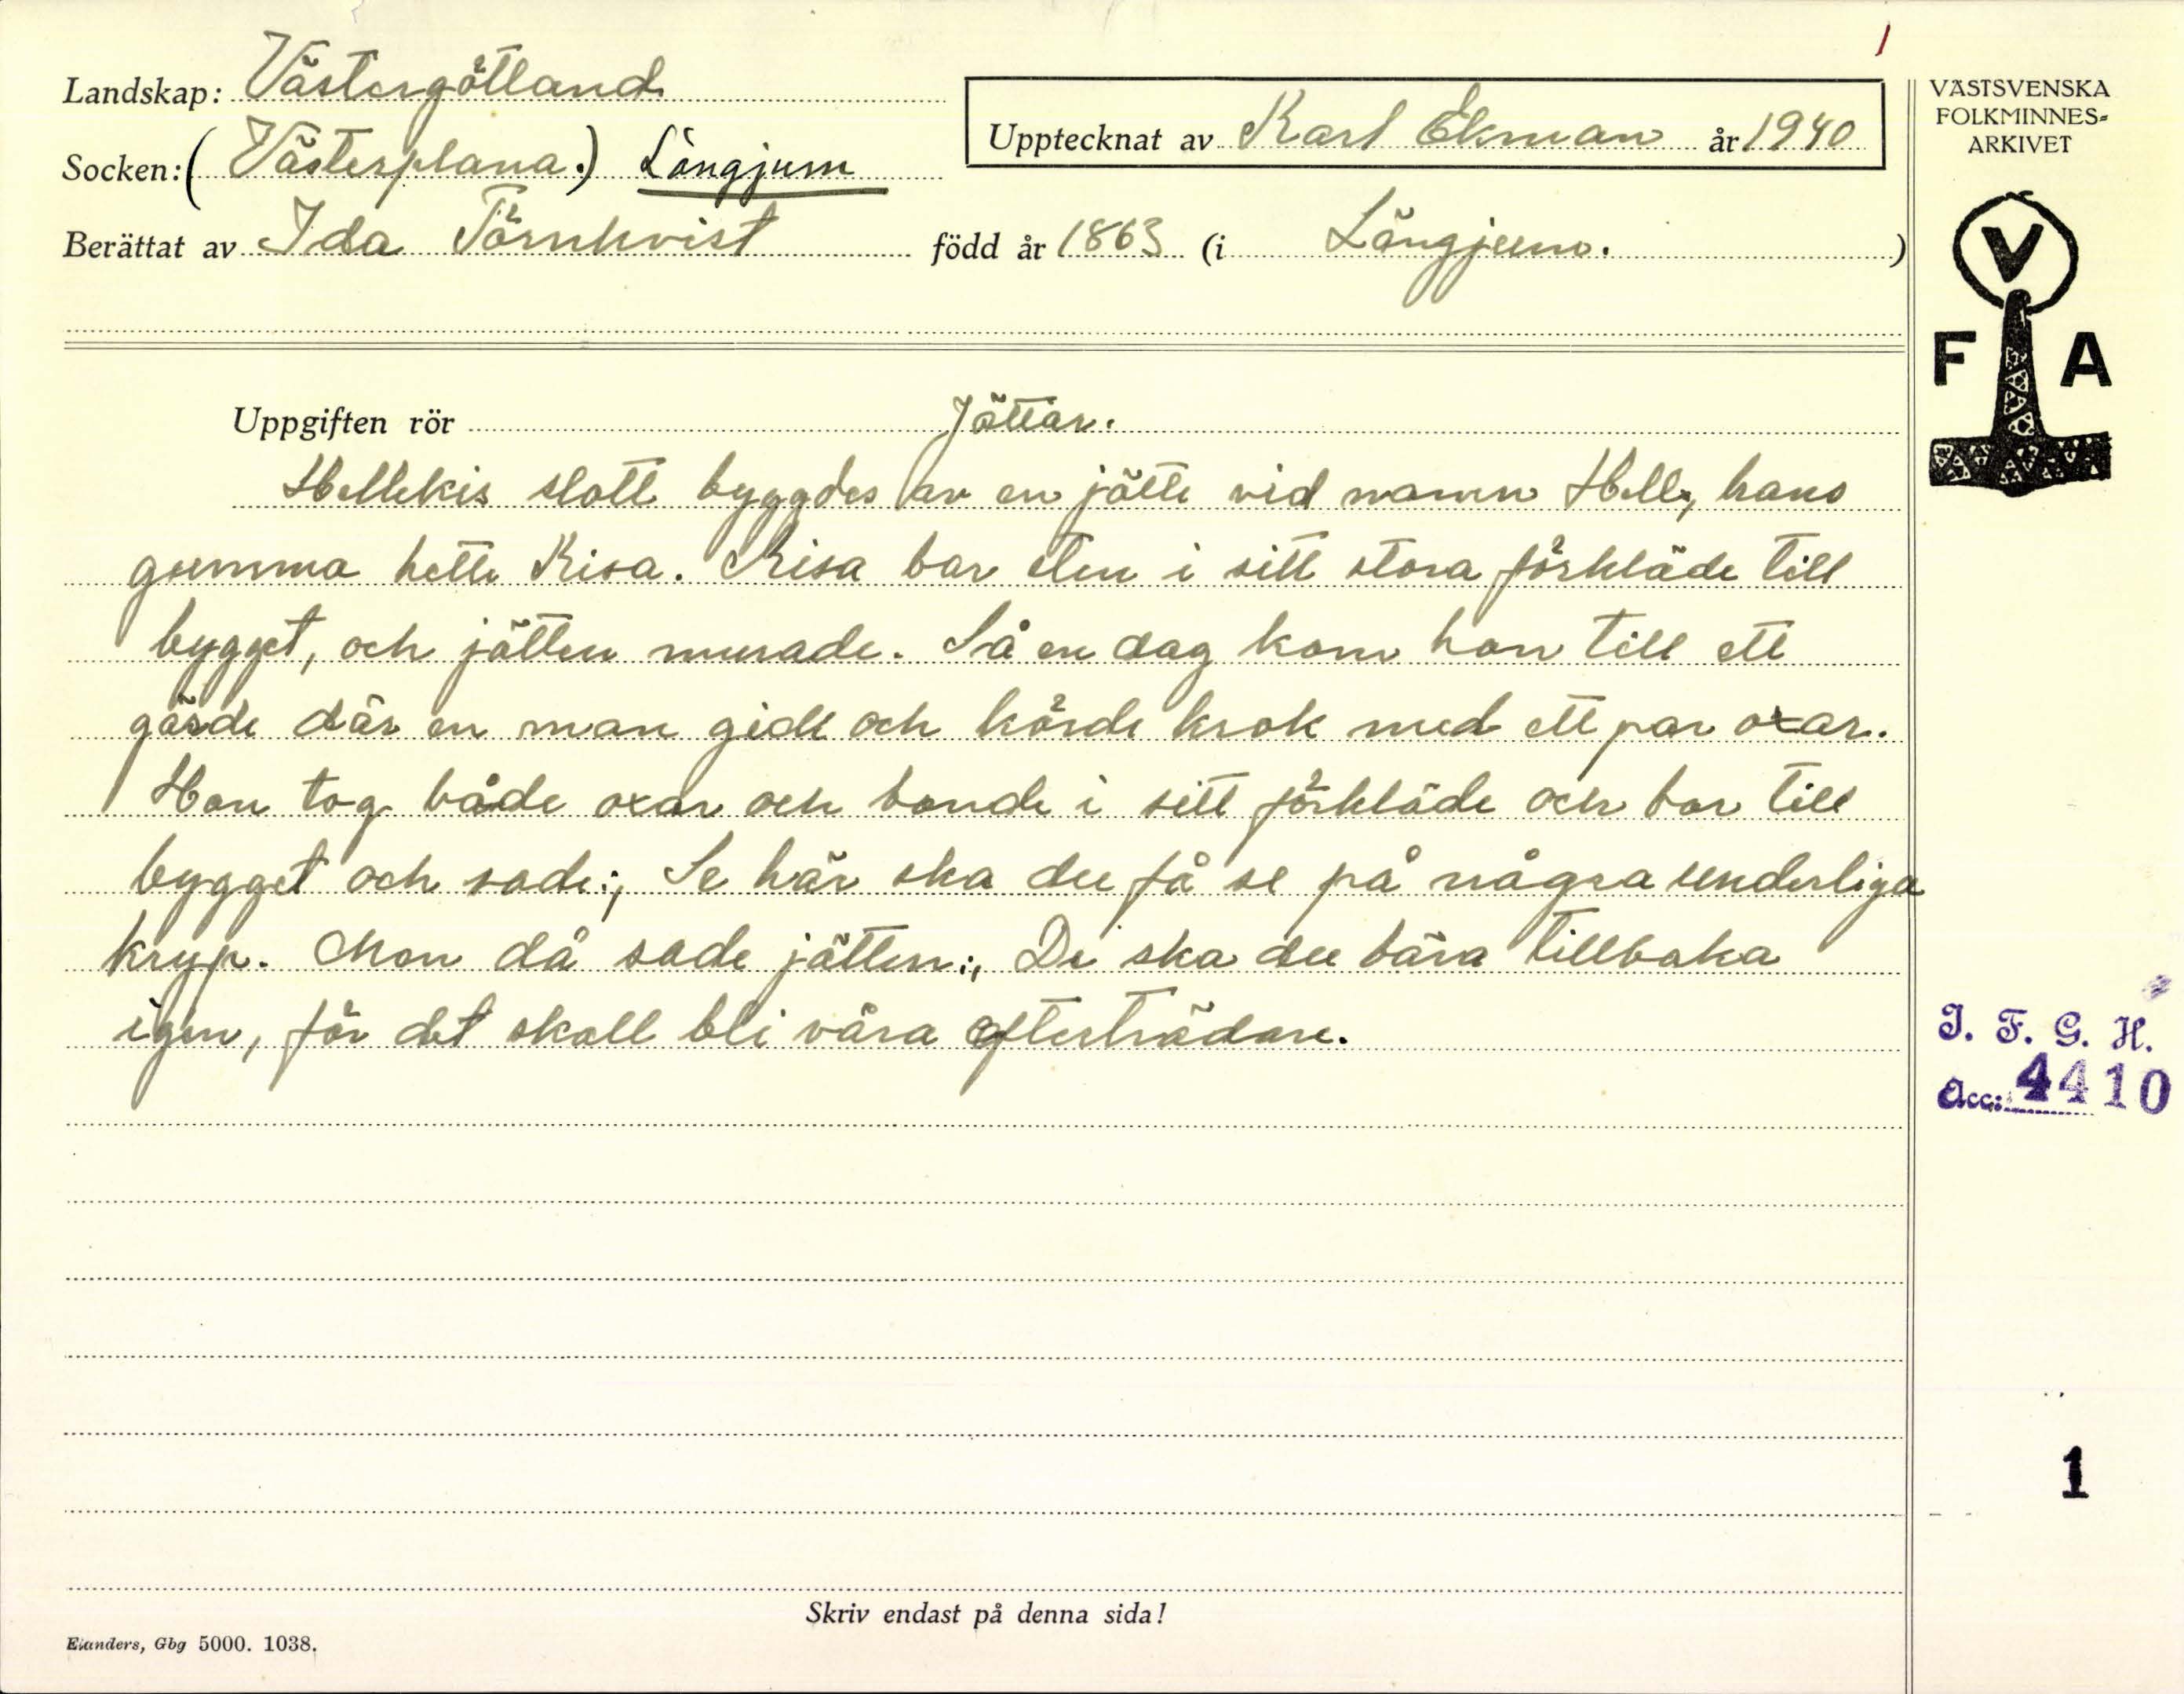 1
Landskap: Västergötland
Socken: (Västerplana.) Längjum
Upptecknat av Karl Ekman år 1940
Berättat av Ida Törnkvist född år 1863 (i Längjum.)
VÄSTSVENSKA
FOLKMINNES=
ARKIVET
V
F A
Uppgiften rör Jättar.
Hellekis slott byggdes av en jätte vid namn Helle, hans
gumma hette Kisa. Kisa bar sten i sitt stora förkläde till
bygget, och jätten murade. Så en dag kom hon till ett
gärde där en man gick och körde krok med ett par oxar.
Hon tog både oxar och bonde i sitt förkläde och bar till
bygget och sade:, Se här ska du få se på några underliga
kryp. Men då sade jätten:, De ska du bära tillbaka
igen, för det skall bli våra efterträdare.
I. F. G. H.
Acc: 4410
1
Skriv endast på denna sida!
Elanders, Gbg 5000. 1038.